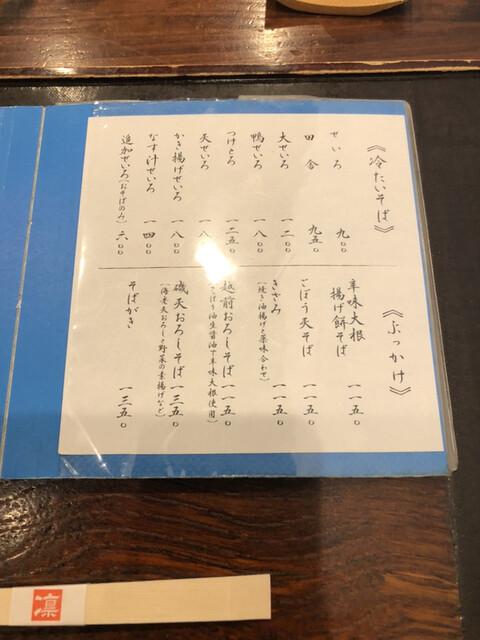 《冷たいそば》
せいろ 九〇〇
田舎 九五〇
大せいろ 一二〇〇
鴨せいろ 一八〇〇
つけとろ 一二五〇
天せいろ 一八〇〇
かき揚げせいろ 一八〇〇
なす汁せいろ 一四〇〇
追加せいろ(おそばのみ) 六〇〇
《ぶっかけ》
辛味大根
揚げ餅そば 一一五〇
ごぼう天そば 一一五〇
きざみ 一一五〇
(焼き油揚げと薬味合わせ)
越前おろしそば 一一五〇
(さっぱり油生醤油で辛味大根使用)
磯天おろしそば 一三五〇
(海老天おろしと野菜の素揚げなど)
そばがき 一三五〇
凛